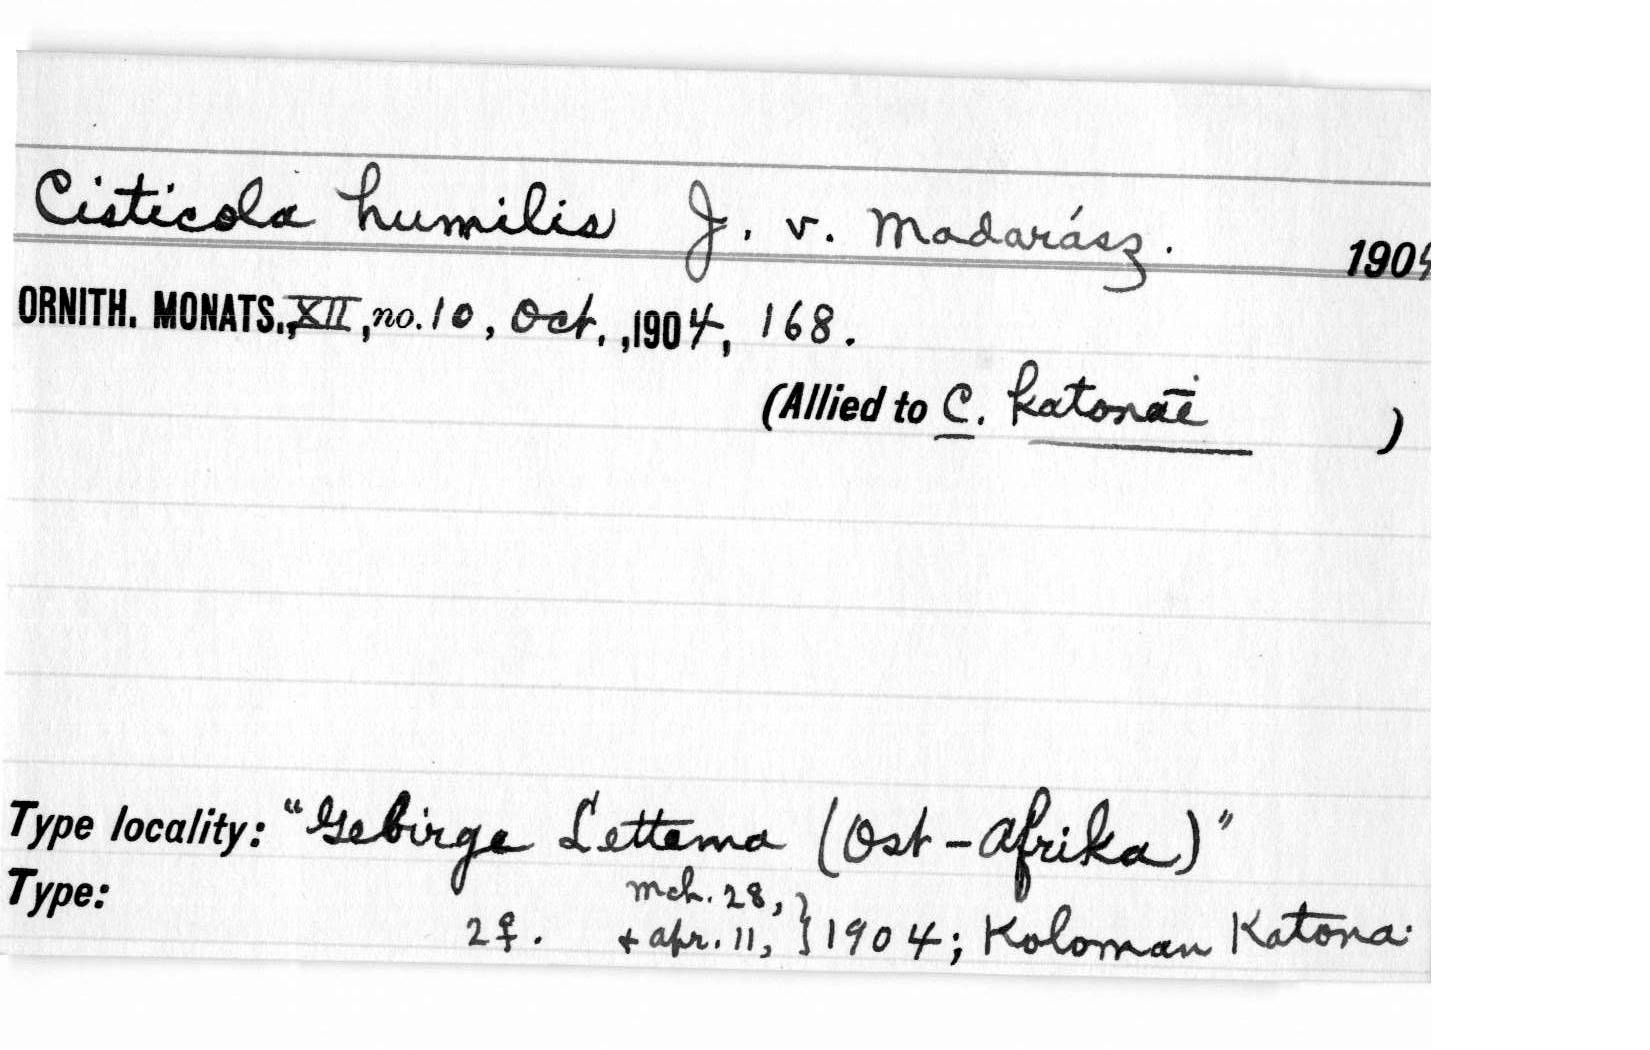 Cisticola humilis J. v. Madarász. 1904
ORNITH. MONATS., XII, no. 10, Oct., ,1904, 168.
(Allied to C. katonae )
Type locality: "Gebirge Lettema (Ost-Afrika)"
Type:
mch. 28,
2♀. + apr. 11, } 1904; Koloman Katona.